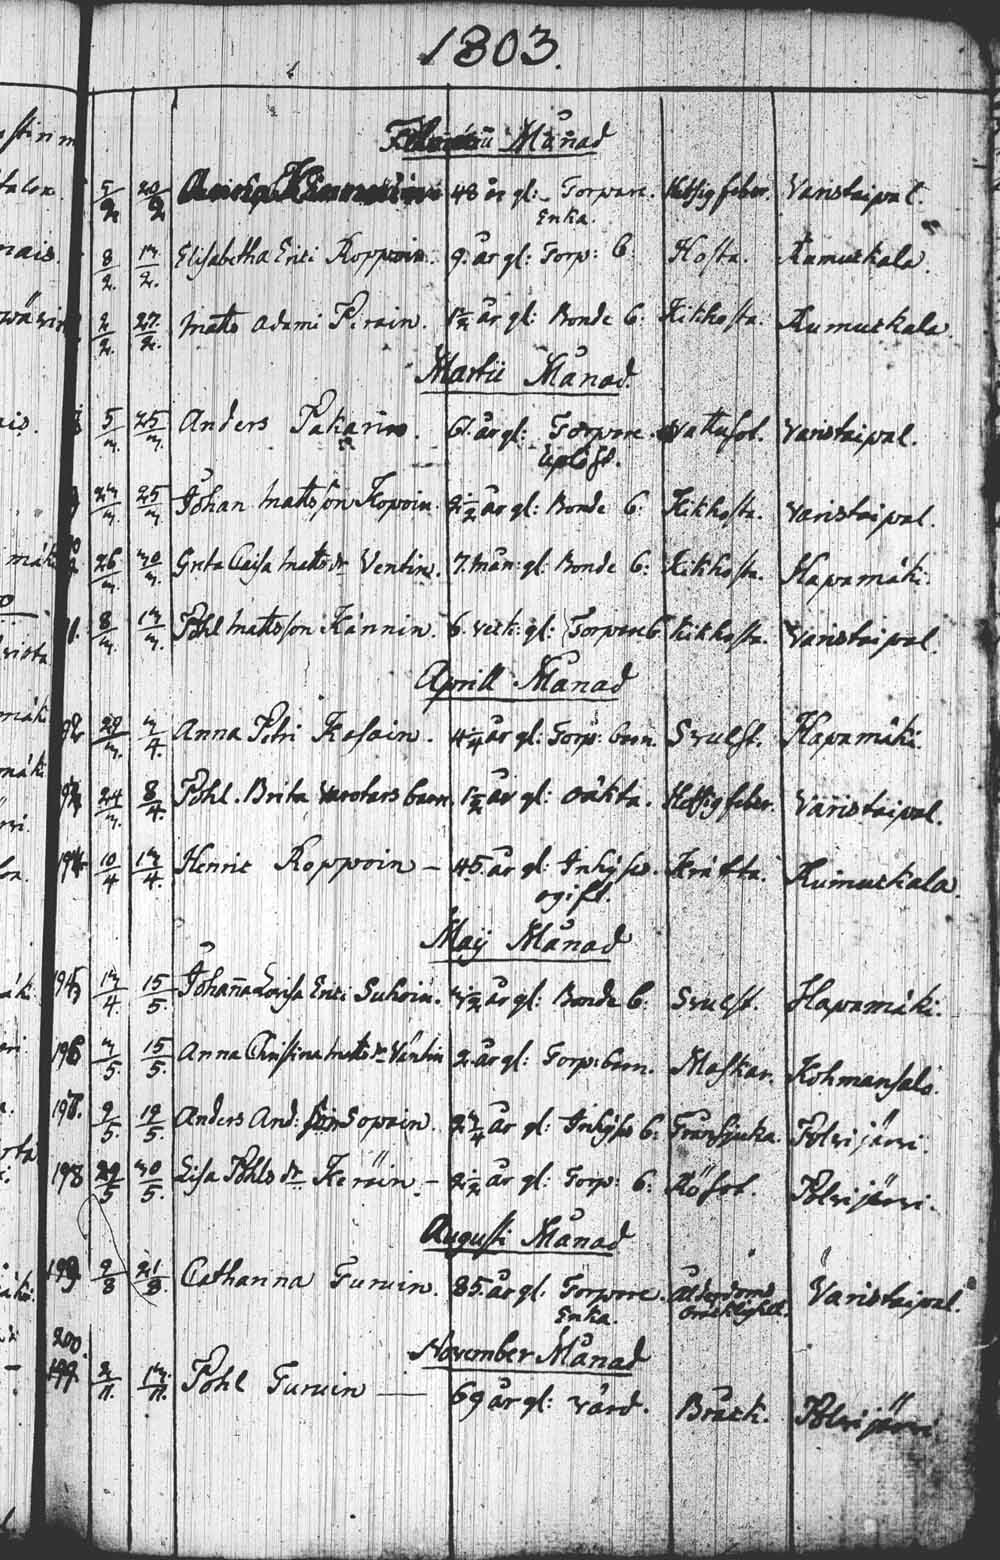 1803.
Månad
5/2 20/2 48 år gl: Torpare Hetsig feber. Varistaipal.
Enka.
8/2 13/2. Elisabetha Erici Roppoin. 9. år gl: Torp: b. Hosta. Kumurkala.
2/2. 27/2. Matts Adami Pirain. 1 1/2 år gl: Bonde b. Kikhosta. Kumurkala.
Martii Månad.
5/3 25/3. Anders Pakarin. 61. år gl: Torpare Vattusot. Varistaipal.
23/3. 25/3. Johan Mattsson Kopoin. 2 1/2 år gl: Bonde b. Kikhosta. Varistaipal.
26/3 30/3. Greta Caisa Matts dr Ventin. 7. mån: gl: Bonde b: Kikhosta. Hapamäki.
8/3. 13/3. Pohl Mattsson Kännin. 6. veck: gl: Torpare b. Kikhosta. Varistaipal.
Aprill Månad
29/3. 3/4. Anna Petri Kasain. 4 1/4 år gl: Torp: barn. Svulst. Hapamäki.
24/3. 8/4. Pohl. Brita Varotars barn 1 1/2 år gl: oäkta. Hetsig feber. Väristaipal.
194 10/4 13/4. Henric Roppoin – 45. år gl: Inhyses. Kräfta. Kumurkala.
ogift.
Maij Månad
195 13/4 15/5 Johanna Lovisa Erici Suhoin. 3 1/2 år gl: Bonde b. Svulst. Hapamäki.
196 3/5 15/5. Anna Christina Matts dr Väntin 2. år gl: Torp: barn. Maskar. Kohmansalo.
197. 9/5. 19/5. Anders And: son Sopain. 2 3/4 år gl: Inhyses b: Transjuka. Polvijärvi.
198 29/5 30/5. Lisa Pohls dr Keröin. – 2 1/2 år gl: Torp: b: Rösot. Polvijärvi.
Augusti Månad
199 9/8 21/8. Catharina Turuin. 85. år gl: Torpare. Ålderdoms Varistaipal.
Enka. bräcklighet.
200.
November Månad
199. 2/11. 13/11. Pohl Turuin — 69 år gl: vård. Bråck. Polvijärvi.